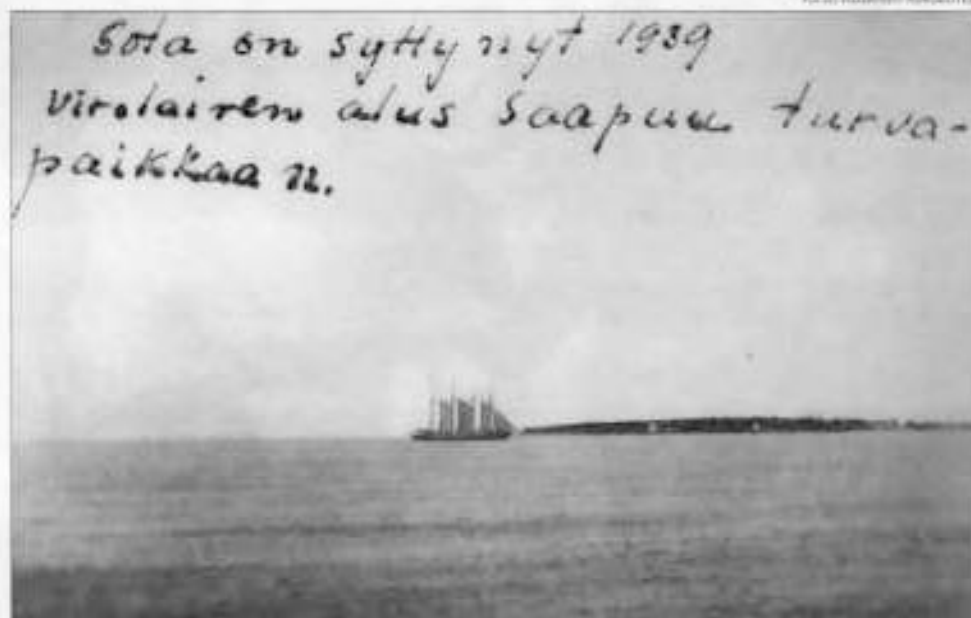 Sota on syttynyt 1939
virolainen alus saapuu turva-
paikkaan.